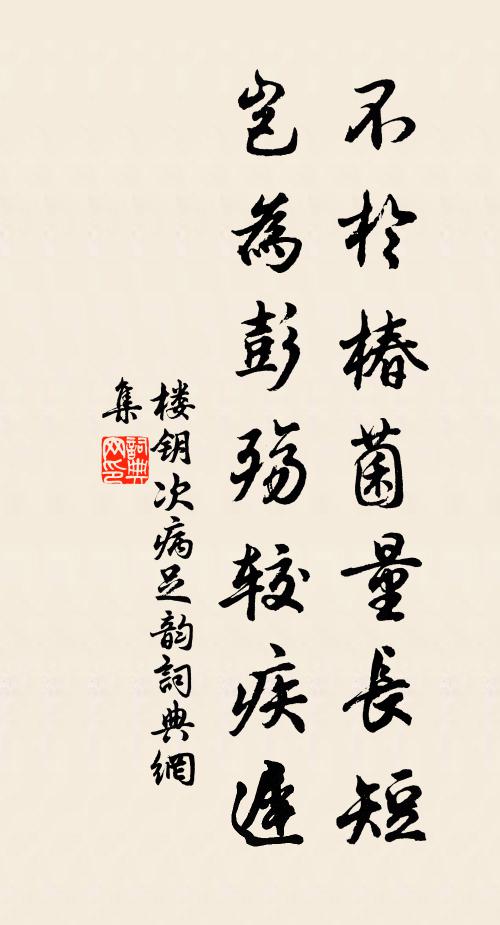 不於椿菌量長短
豈為彭殤較疾遲
楼钥次病足韵詞典網
集
詞典網印